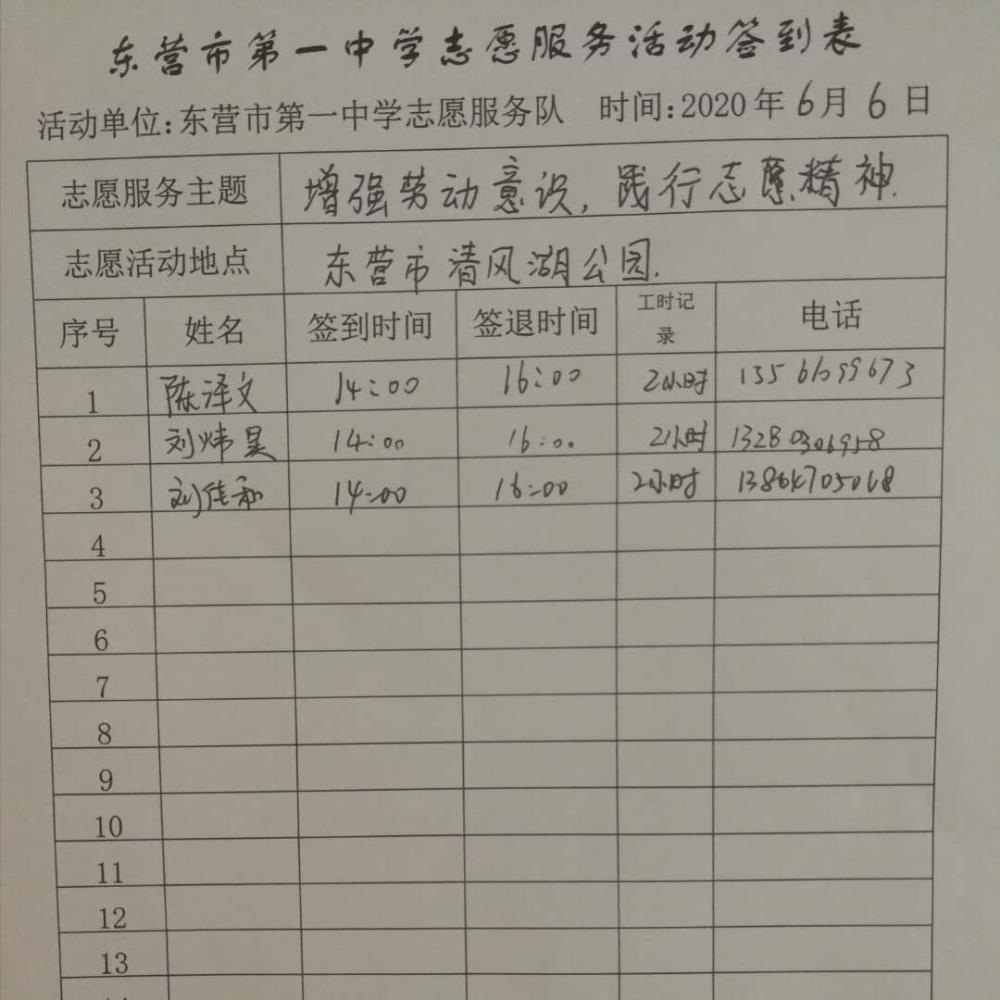 东营市第一中学志愿服务活动签到表
活动单位:东营市第一中学志愿服务队 时间:2020年6月6日
志愿服务主题 增强劳动意识,践行志愿精神.
志愿活动地点 东营市清风湖公园.
序号 姓名 签到时间 签退时间 工时记录 电话
1 陈泽文 14:00 16:00 2小时
2 刘炜昊 14:00 16:00 2小时 13280306958
3 刘佳和 14:00 16:00 2小时 13864705068
4
5
6
7
8
9
10
11
12
13